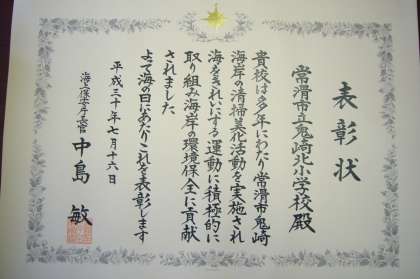 表彰状
常滑市立鬼崎北小学校殿
貴校は多年にわたり常滑市鬼崎
海岸の清掃美化活動を実施され
海をきれいにする運動に積極的に
取り組み海岸の環境保全に貢献
されました
よって海の日にあたりこれを表彰します
平成三十年七月十六日
海上保安庁長官 中島 敏